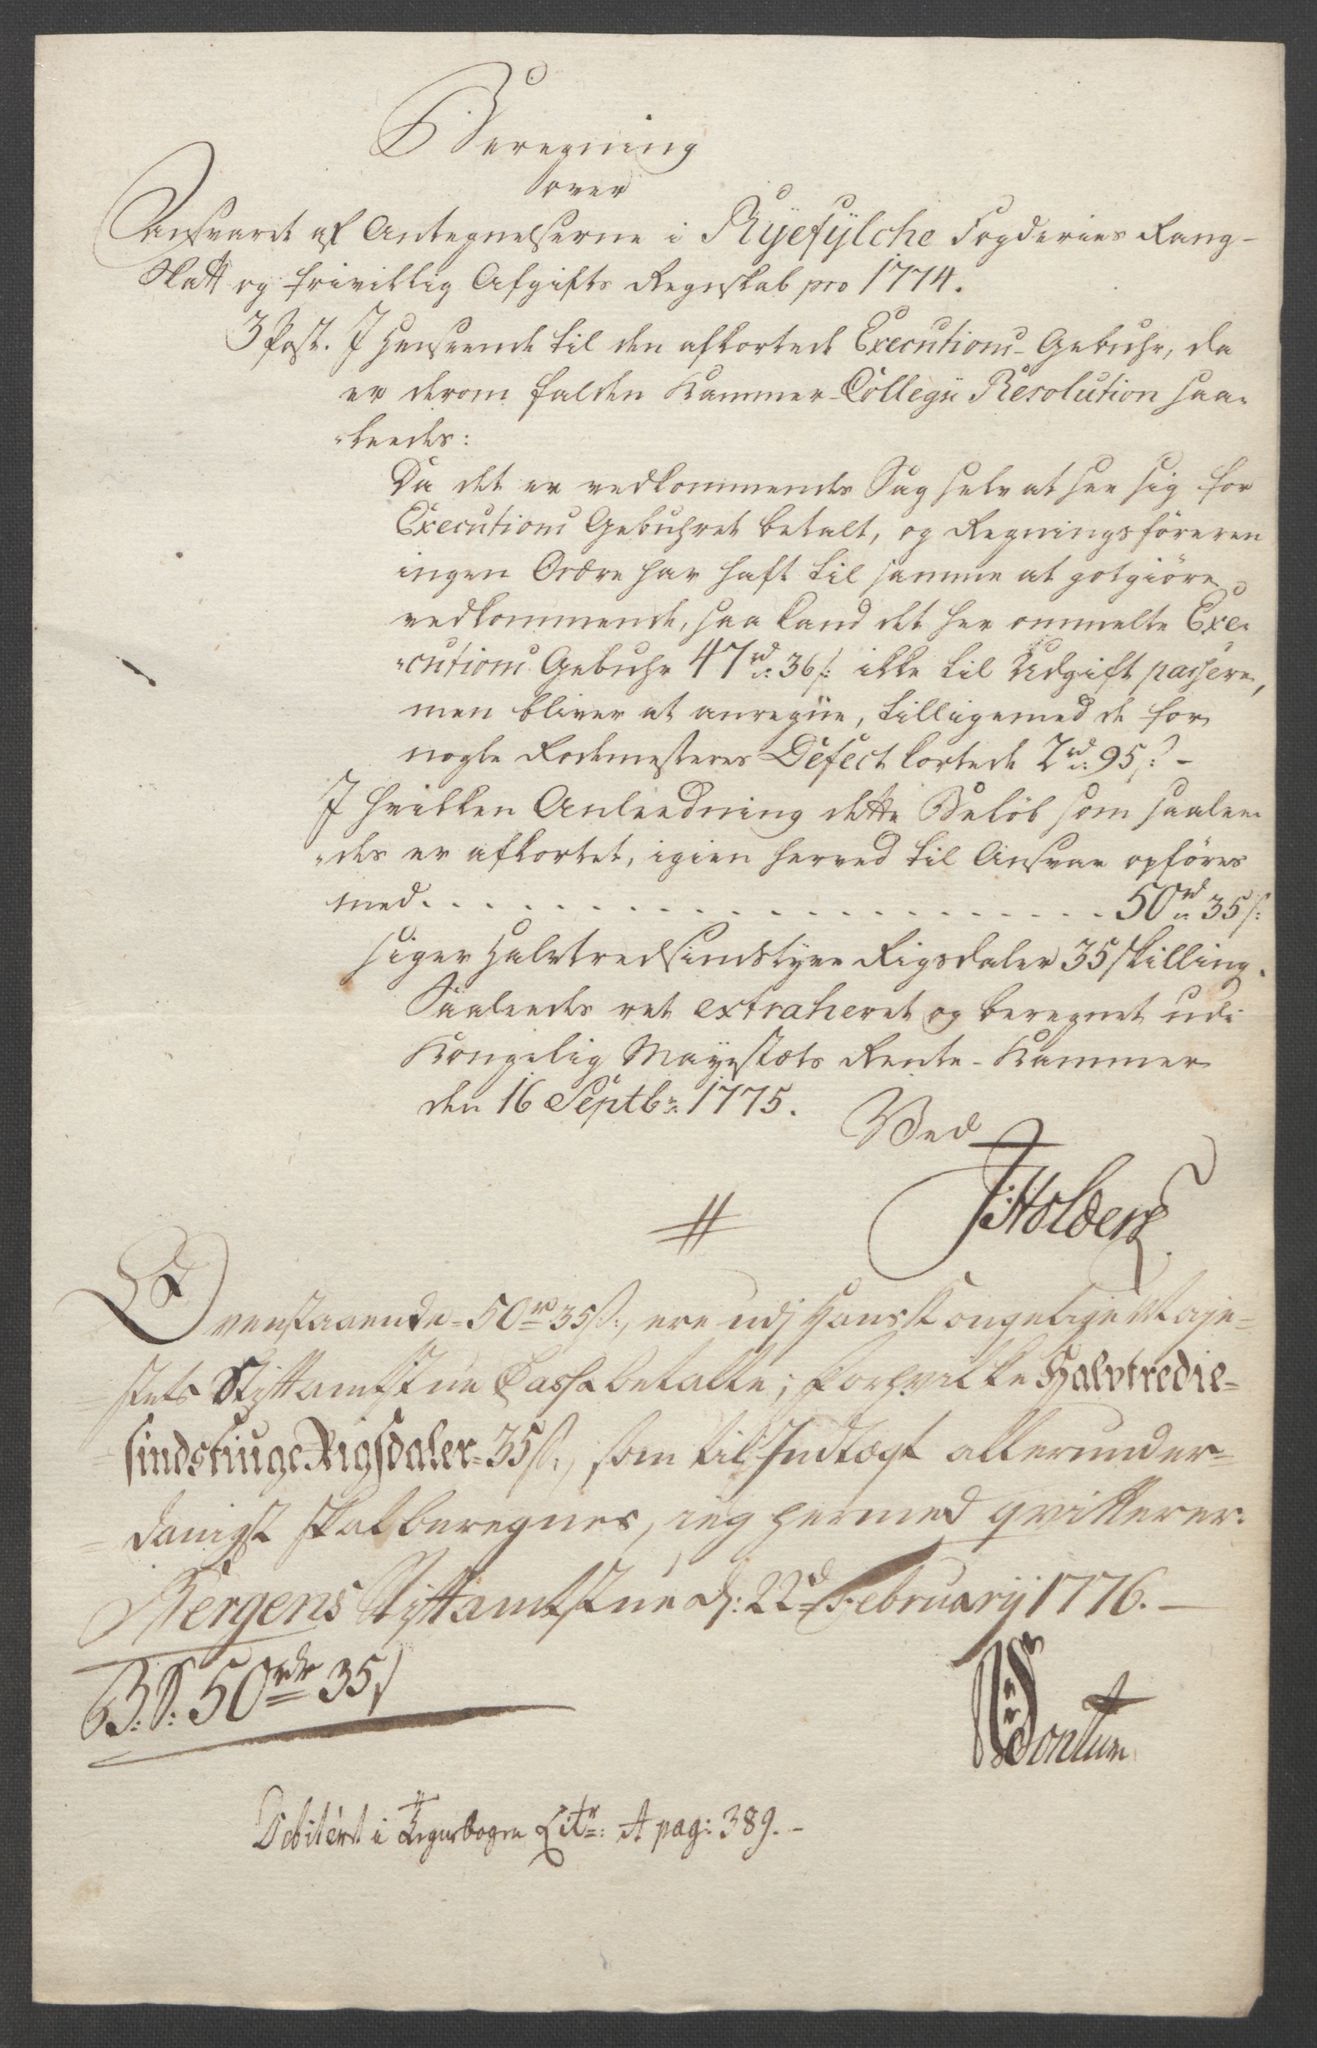 Beregning
over
Ansvaret af Antegnelserne i Ryefylche Fogderies Rang-
Skatt og frivillig Afgifts Regnskab pro 1774.
3 Post. I Henseende til den afkortede Executions-Gebuhr, da
er derom falden Kammer-Collegii Resolution saa-
leedes:
Da det er vedkommendes Sag selv at see sig for
Executions Gebuhret betalt, og Regningsföreren
ingen Ordre har haft til samme at gotgiöre
vedkommende, saa kand det her ommelte Exe-
cutions Gebuhr 47rd: 36s: ikke til Udgift passere,
men bliver at anregne, tilligemed de for
nogle Rodemesteres Defect kortede 2rd: 95s: -
I hvilken Anleedning dette Belöb som saalee-
des er afkortet, igien herved til Ansvar opföres
med . . . . . . . . . . . . . . . . . . . . . . . 50rd 35s:
siger Halvtredsindstyve Rigsdaler 35 skilling.
Saaleedes ret extraheret og beregnet udi
Kongelig Mayestæts Rente-Kammer
den 16 Septbr: 1775.
Ved
J: Holberg
#
Ovenstaaende 50rd 35s:, ere udj Hans Kongelige Maje-
stets Stiftamtstue Cassa betalte; forhvilke Halvtredie-
sindstiuge Rigsdaler 35s:, som til Indtægt allerunder-
danigst skal beregnes, ieg hermed qvitterer.
Bergens Stiftamtstue d: 22d February 1776. -
B. S: 50rdr 35s
Debiteret i Regnsbogen Litr: A pag: 389. -